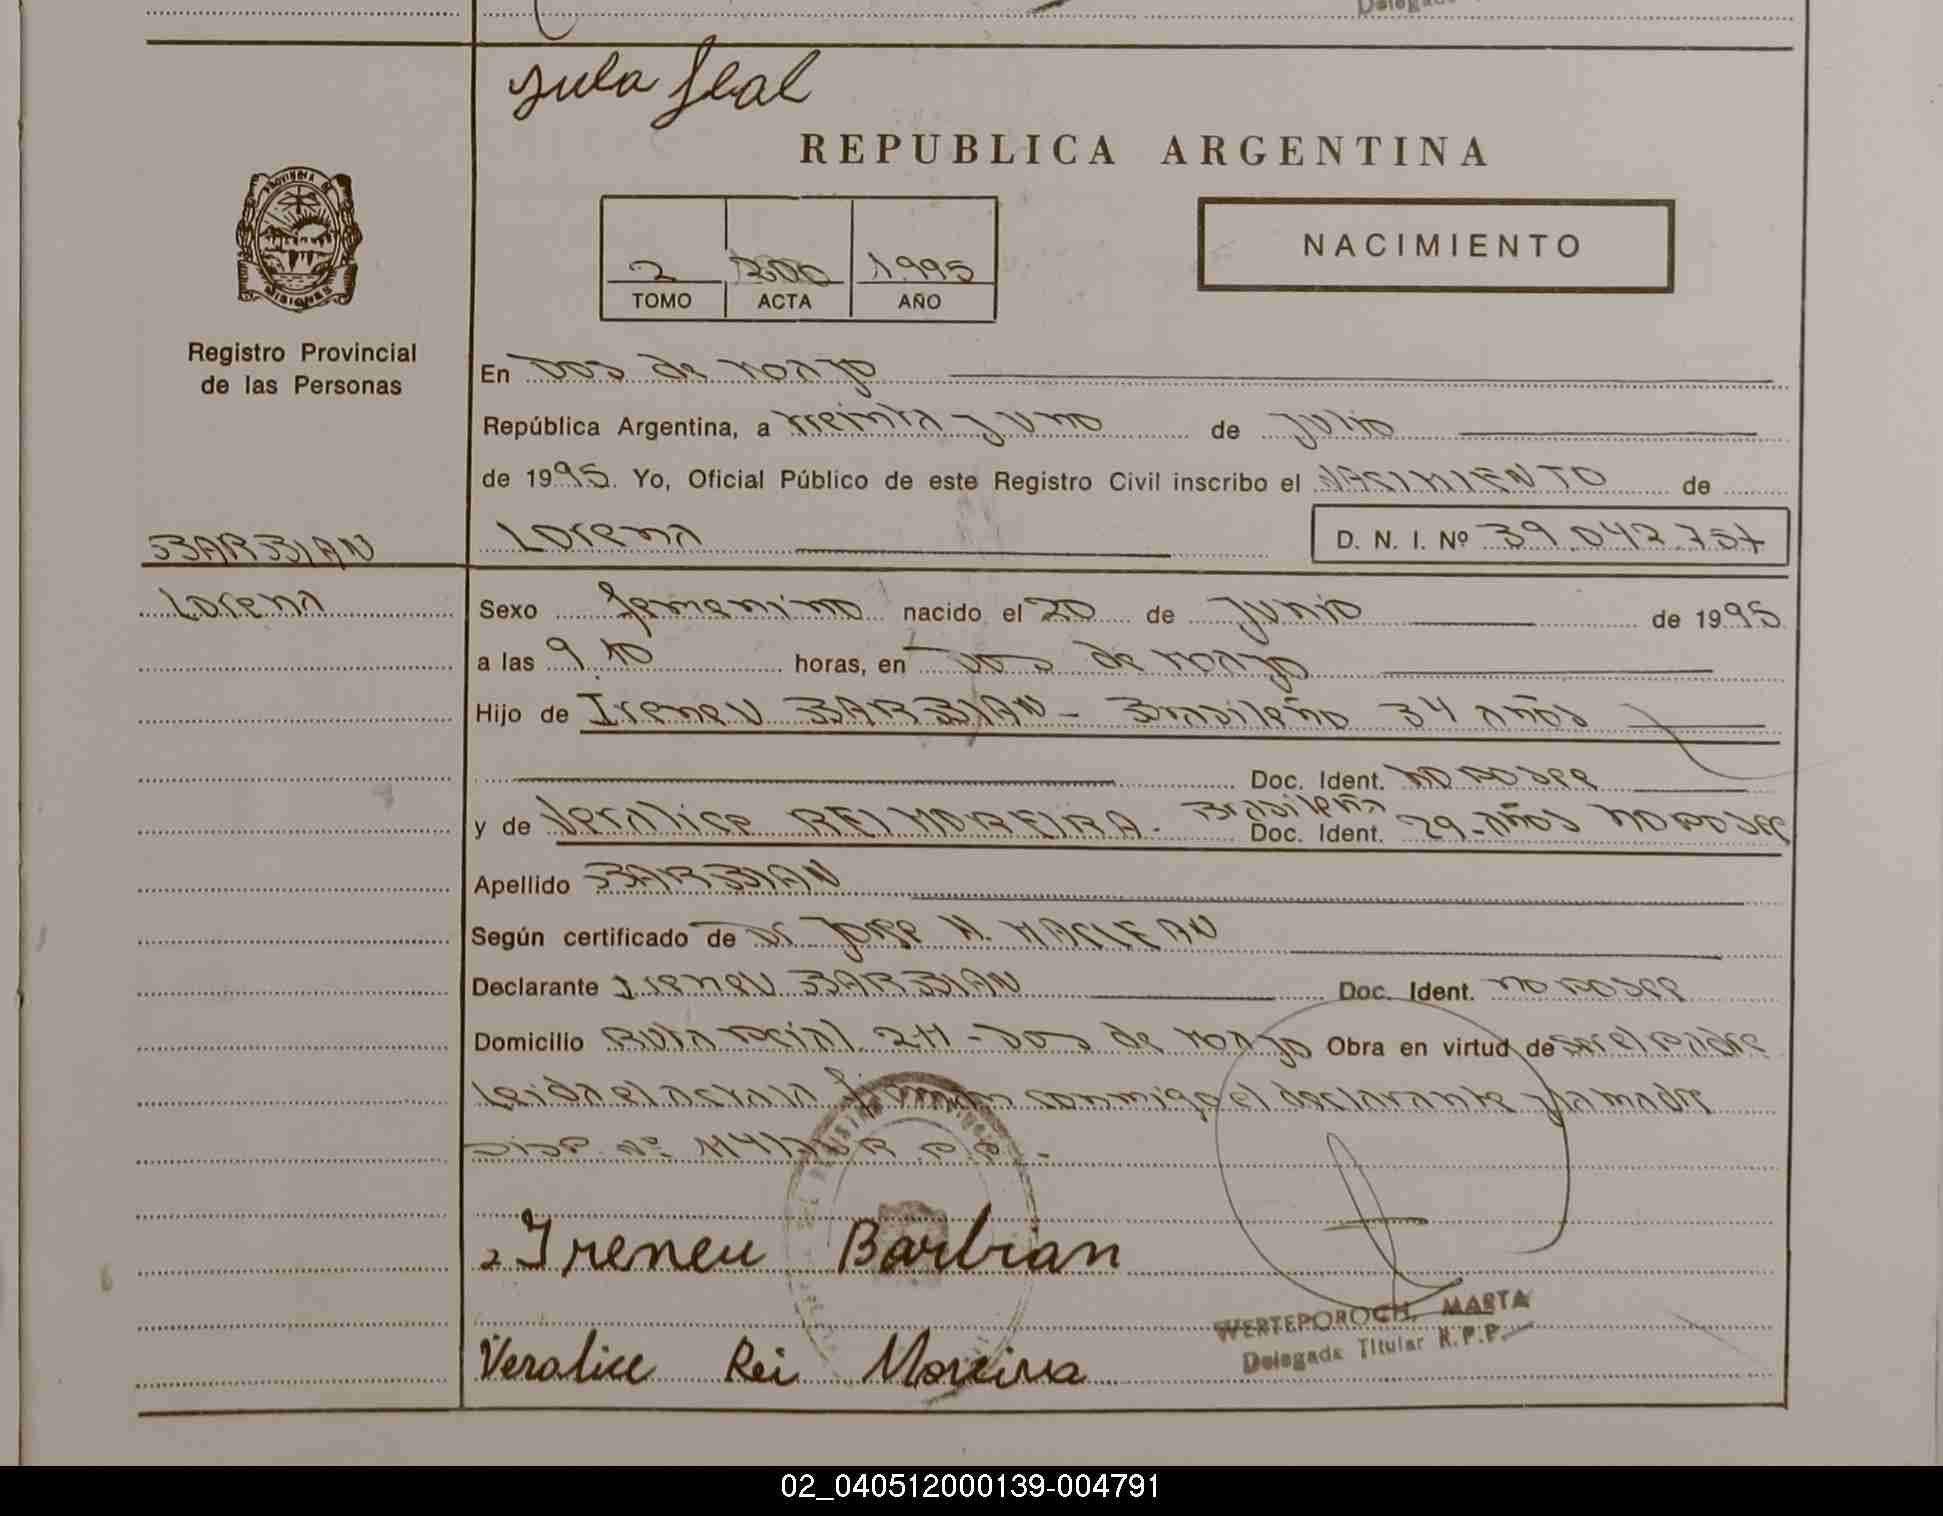 REPUBLICA ARGENTINA
PROVINCIA DE
MISIONES
Registro Provincial
de las Personas
2 300 1995
TOMO ACTA AÑO
NACIMIENTO
En Dos de Mayo
República Argentina, a treinta y uno de Julio
de 1995. Yo, Oficial Público de este Registro Civil inscribo el NACIMIENTO de
BARBIAN
Lorena
Lorena
D. N. I. Nº 39.042.757
Sexo femenino nacido el 20 de Junio de 1995
a las 9,10 horas, en Dos de Mayo
Hijo de Ireneu BARBIAN - Brasileño 34 años
Doc. Ident. no posee
y de Veralice REI MOREIRA. Brasileña
Doc. Ident. 29 años no posee
Apellido BARBIAN
Según certificado de Dr Jorge H. MACLEAN
Declarante Ireneu BARBIAN Doc. Ident. no posee
Domicilio Ruta 211 - Dos de Mayo Obra en virtud de ser el padre
Leida el acta la firman conmigo el declarante y la madre
Disp. Nº
Ireneu Barbian
Veralice Rei Moreira
WERTEPOROCH, MARTA
Delegada Titular R.P.P.
02_040512000139-004791